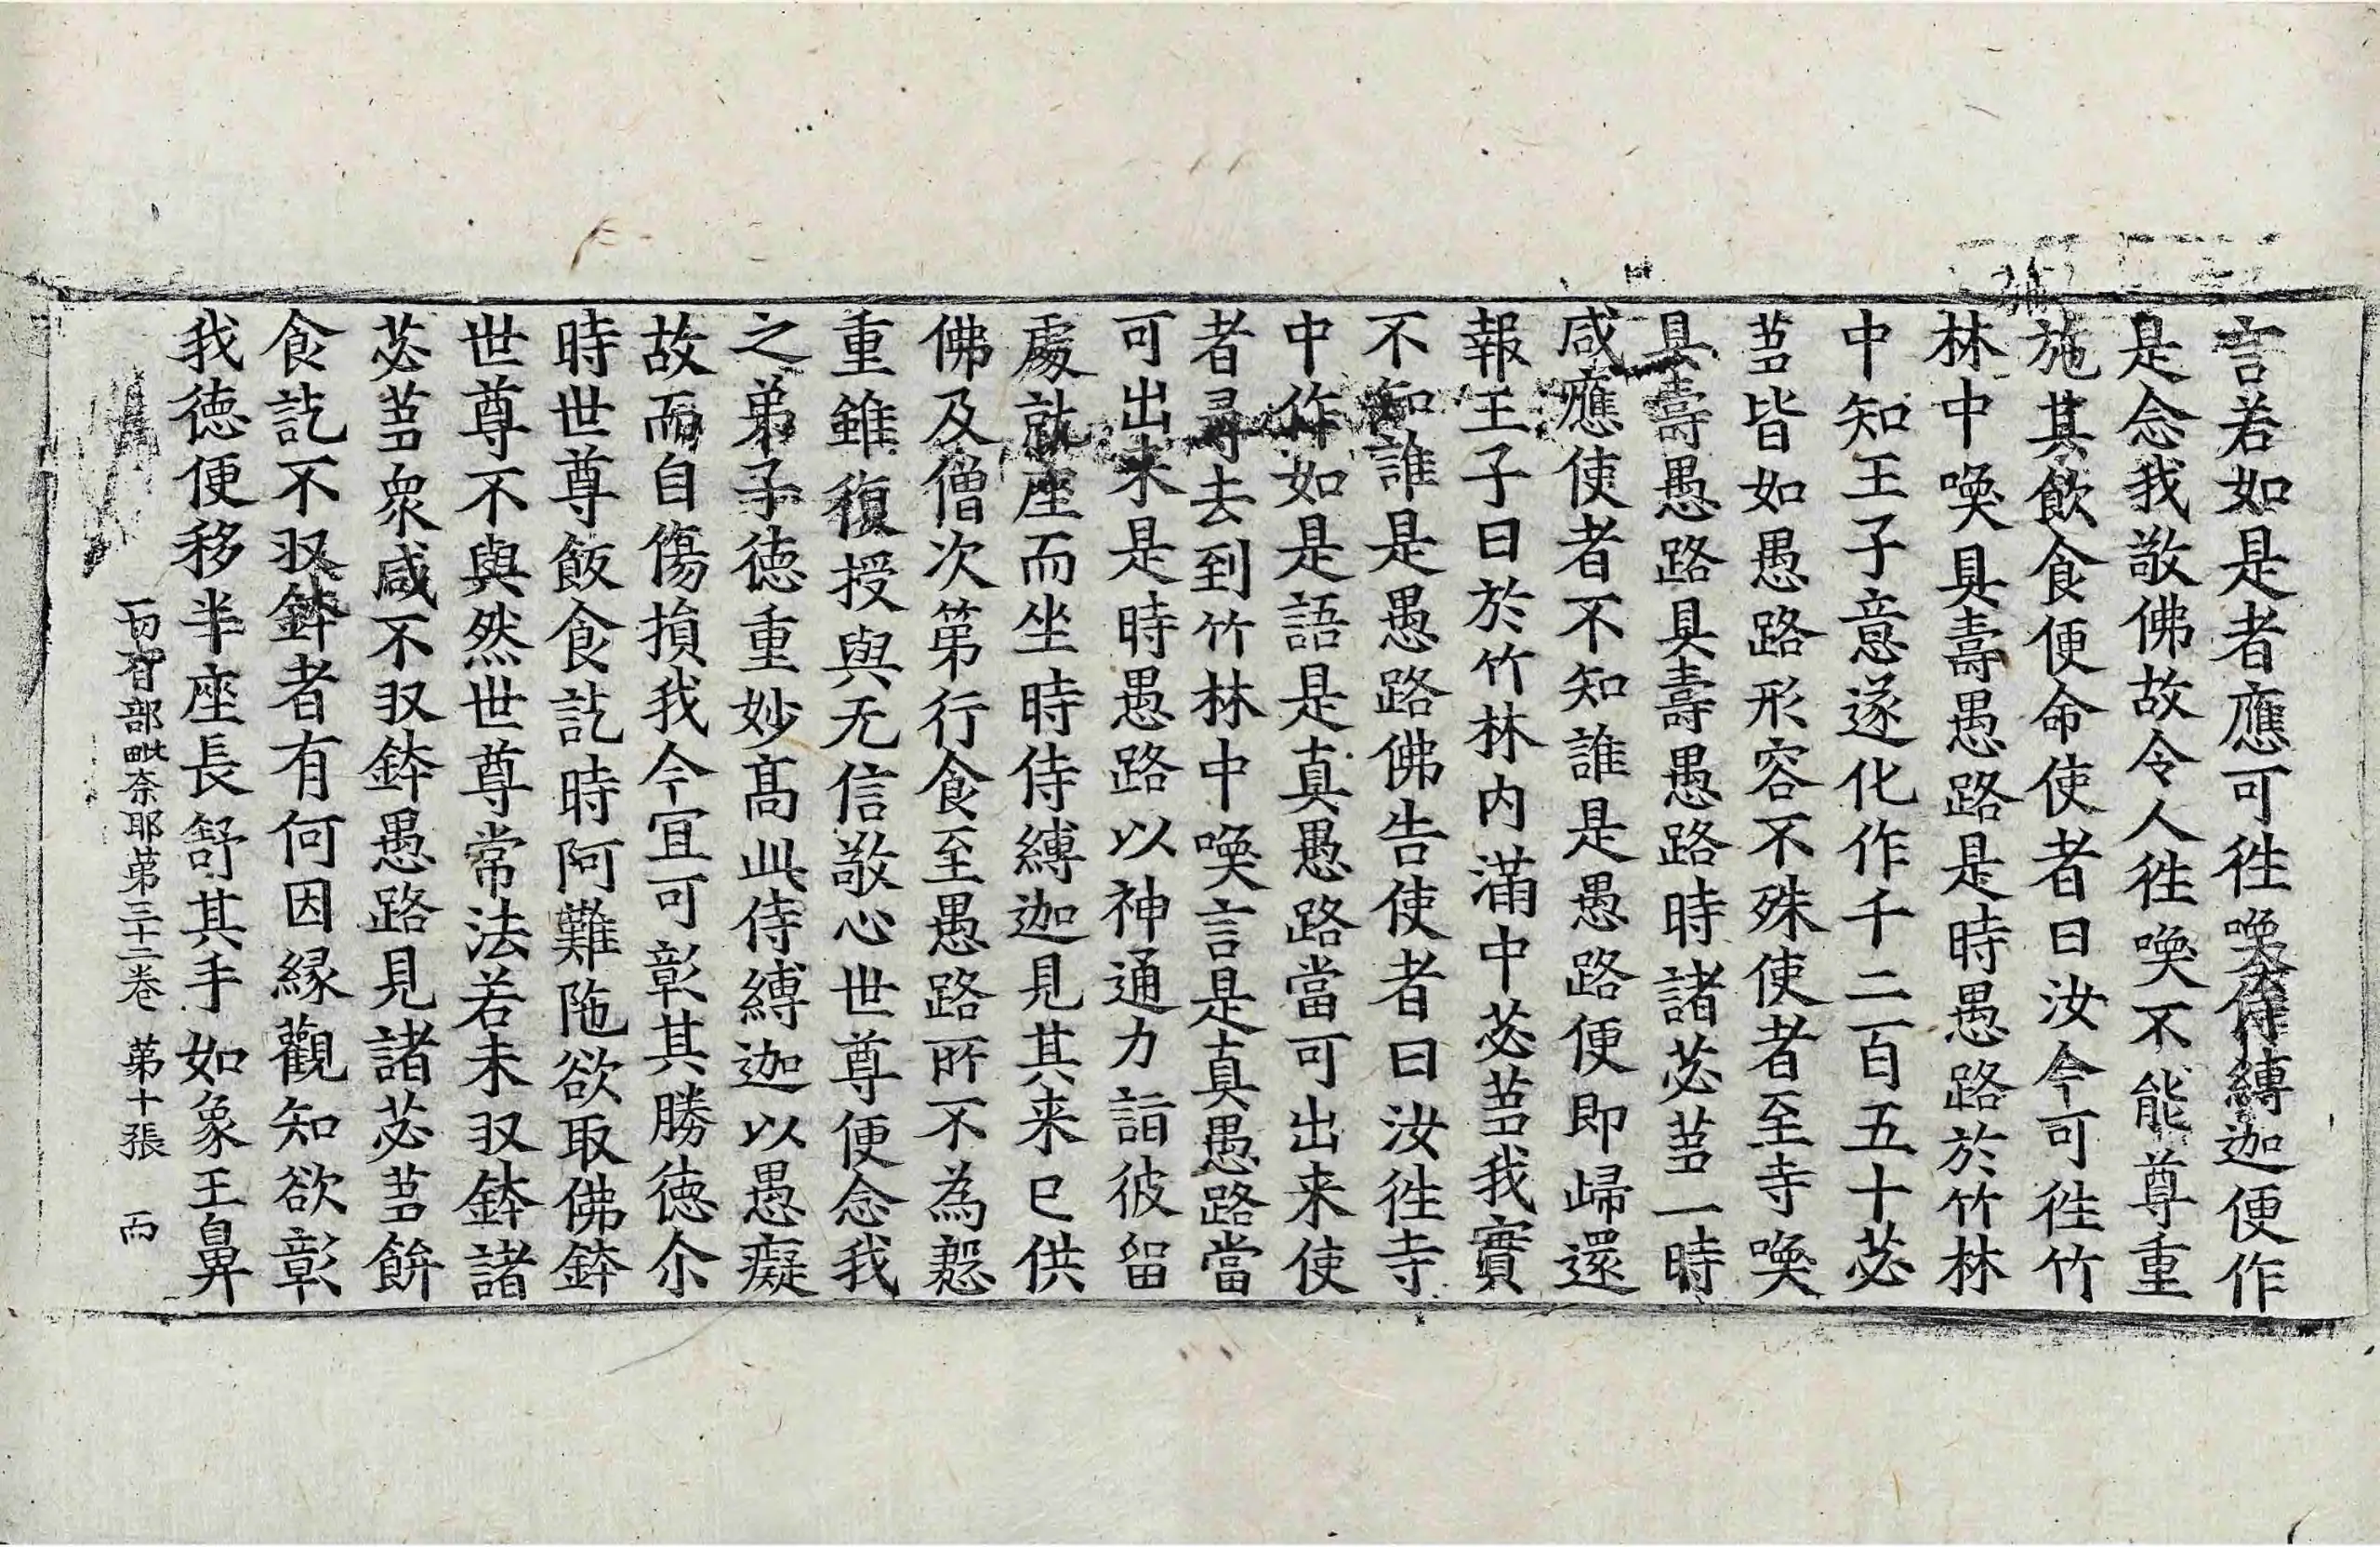 言若如是者應可徃喚侍縛迦便作
是念我敬佛故令人徃喚不能尊重
施其飲食便命使者曰汝今可徃竹
林中喚具壽愚路是時愚路於竹林
中知王子意遂化作千二百五十苾
蒭皆如愚路形容不殊使者至寺喚
具壽愚路具壽愚路時諸苾蒭一時
咸應使者不知誰是愚路便即歸還
報王子曰於竹林内滿中苾蒭我實
不知誰是愚路佛告使者曰汝徃寺
中作如是語是真愚路當可出来使
者尋去到竹林中喚言是真愚路當
可出来是時愚路以神通力詣彼留
處就座而坐時侍縛迦見其来已供
佛及僧次第行食至愚路所不為慇
重雖復授與无信敬心世尊便念我
之弟子德重妙髙此侍縛迦以愚癡
故而自傷損我今宜可彰其勝德尒
時世尊飯食訖時阿難陁欲取佛鉢
世尊不與然世尊常法若未収鉢諸
苾蒭衆咸不収鉢愚路見諸苾蒭餅
食訖不収鉢者有何因縁觀知欲彰
我德便移半座長舒其手如象王鼻
一切有部毗奈耶第三十二卷 第十張 而